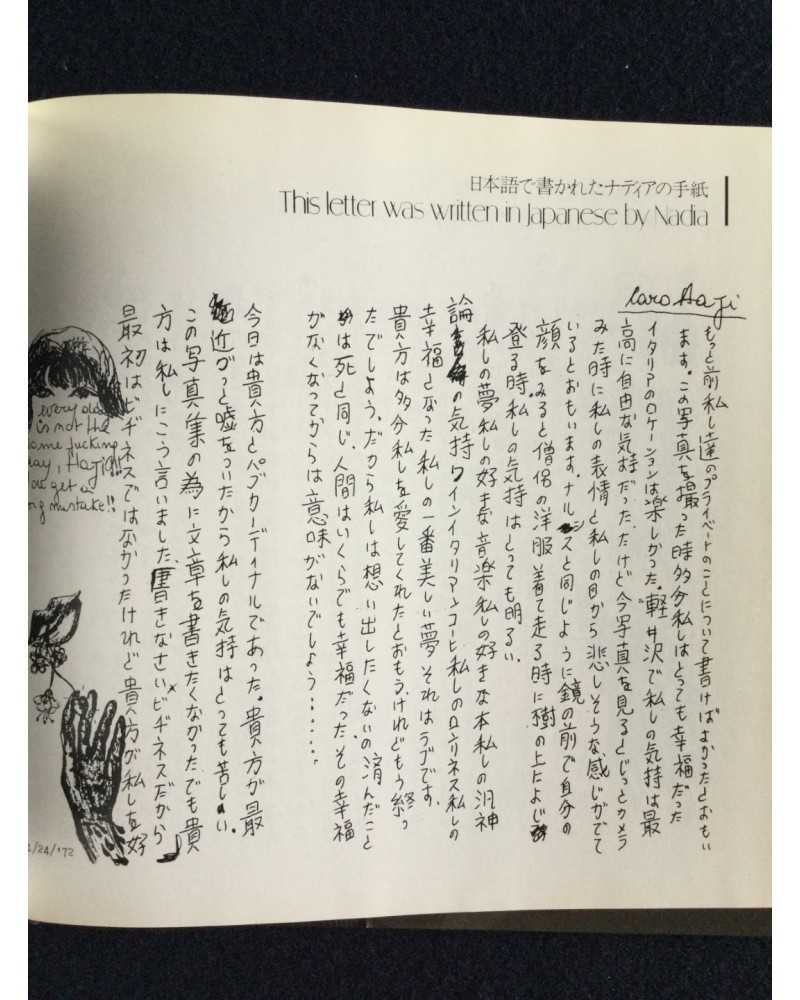 日本語で書かれたナディアの手紙
This letter was written in Japanese by Nadia
Caro Hagi
もっと前私し達のプライベートのことについて書けばよかったとおもい
ます。この写真を撮った時多分私しはとっても幸福だった
イタリアのロケーションは楽しかった。軽井沢で私しの気持は最
高に自由な気持だった、だけど今写真を見るとじっとカメラ
みた時に私しの表情と私しの目から悲しそうな感じがでて
いるとおもいます。ナルシスと同じように鏡の前で自分の
顔をみると僧侶の洋服着て走る時に樹の上によじ
登る時、私しの気持はとっても明るい。
私しの夢私しの好きな音楽私しの好きな本私しの汎神
論の気持ワインイタリアンコーヒ私しのロンリネス私しの
幸福となった私しの一番美しい夢それはラブです。
貴方は多分私しを愛してくれたとおもう、けれどもう終っ
たでしよう。だから私しは想い出したくないの済んだこと
は死と同じ、人間はいくらでも幸福だった、その幸福
がなくなってからは意味がないでしよう……。
今日は貴方とパブカーディナルであった。貴方が最
近ずっと嘘をついたから私しの気持はとっても苦しい。
この写真集の為に文章を書きたくなかった、でも貴
方は私しにこう言いました、書きなさいビヂネスだから
最初はビヂネスではなかったけれど貴方が私しを好
every day
is not the
same fucking
day, Hagi!!
get a
mistake!!
/24/'72